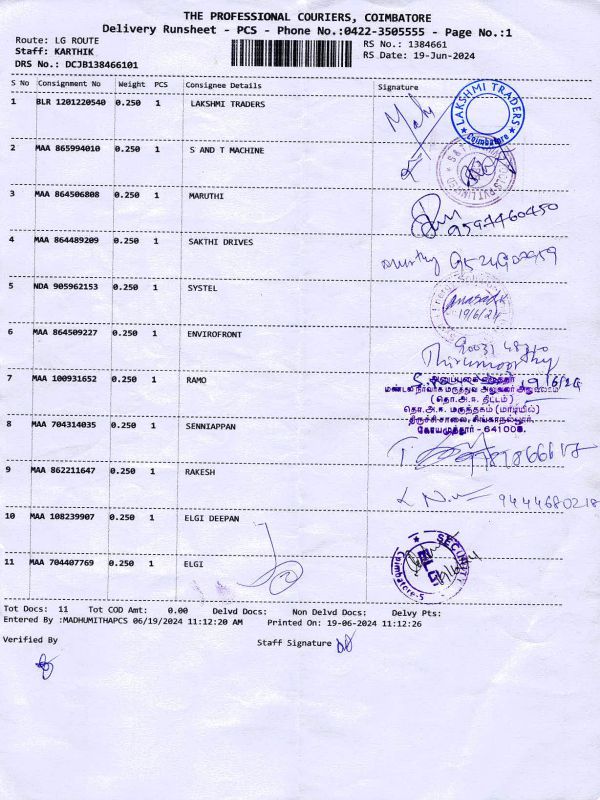 THE PROFESSIONAL COURIERS, COIMBATORE
Delivery Runsheet - PCS - Phone No.:0422-3505555 - Page No.:1
Route: LG ROUTE
Staff: KARTHIK
DRS No.: DCJB138466101
RS No.: 1384661
RS Date: 19-Jun-2024
S No Consignment No Weight PCS Consignee Details Signature
1 BLR 1201220540 0.250 1 LAKSHMI TRADERS
LAKSHMI TRADERS
Coimbatore
2 MAA 865994010 0.250 1 S AND T MACHINE
3 MAA 864506808 0.250 1 MARUTHI
4 MAA 864489209 0.250 1 SAKTHI DRIVES
5 NDA 905962153 0.250 1 SYSTEL
19/6/24
6 MAA 864509227 0.250 1 ENVIROFRONT
Thirumoorthy
7 MAA 100931652 0.250 1 RAMO
19/6/24
(தொ.அ.ஈ. திட்டம்)
கோயமுத்தூர் - 641005.
8 MAA 704314035 0.250 1 SENNIAPPAN
9 MAA 862211647 0.250 1 RAKESH
9444680218
10 MAA 108239907 0.250 1 ELGI DEEPAN
11 MAA 704407769 0.250 1 ELGI
SECURITY
ELGI
Coimbatore-5
Tot Docs: 11 Tot COD Amt: 0.00 Delvd Docs: Non Delvd Docs: Delvy Pts:
Entered By :MADHUMITHAPCS 06/19/2024 11:12:20 AM Printed On: 19-06-2024 11:12:26
Verified By Staff Signature